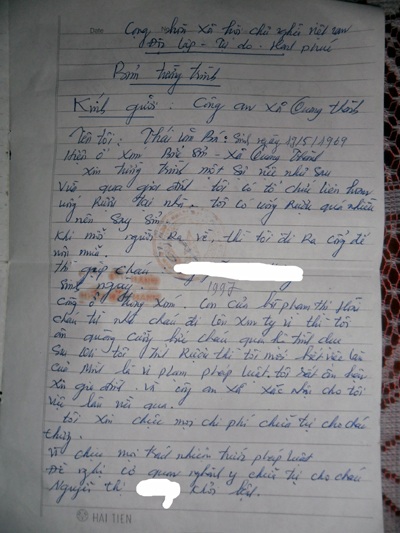 Date
Cộng hòa Xã hội chủ nghĩa việt nam
Độc lập - Tự do - Hạnh phúc
Bản tường trình
Kính gửi : Công an xã Quang Thành
Tên tôi : Thái Bá : Sinh ngày 19/5/1969
Hiện ở xóm - Xã Quang Thành
xin tường trình một Sự việc như Sau
Vừa qua gia đình tôi có tổ chức liên hoan
uống Rượu tại nhà. tôi có uống Rượu quá nhiều
nên Say
Khi mọi người Ra về, thì tôi đi Ra cổng để
thì gặp cháu
Sinh ngày 1997
Cùng ở xóm. Con của phạm thị
cháu từ nhà cháu đi lên xem ty vi thì tôi
ôm cháu qua
Sau khi tôi Rượu thì tôi mới biết việc làm
của Mình là vi phạm pháp luật, tôi rất ân hận
Xin gia đình và công an Xã cho tôi
việc làm vừa qua.
tôi xin chịu mọi chi phí chữa trị cho cháu
Và chịu mọi trách nhiệm trước pháp luật
Đề nghị cơ quan y chữa trị cho cháu
Nguyễn thị khỏi bệnh.
HẢI TIẾN